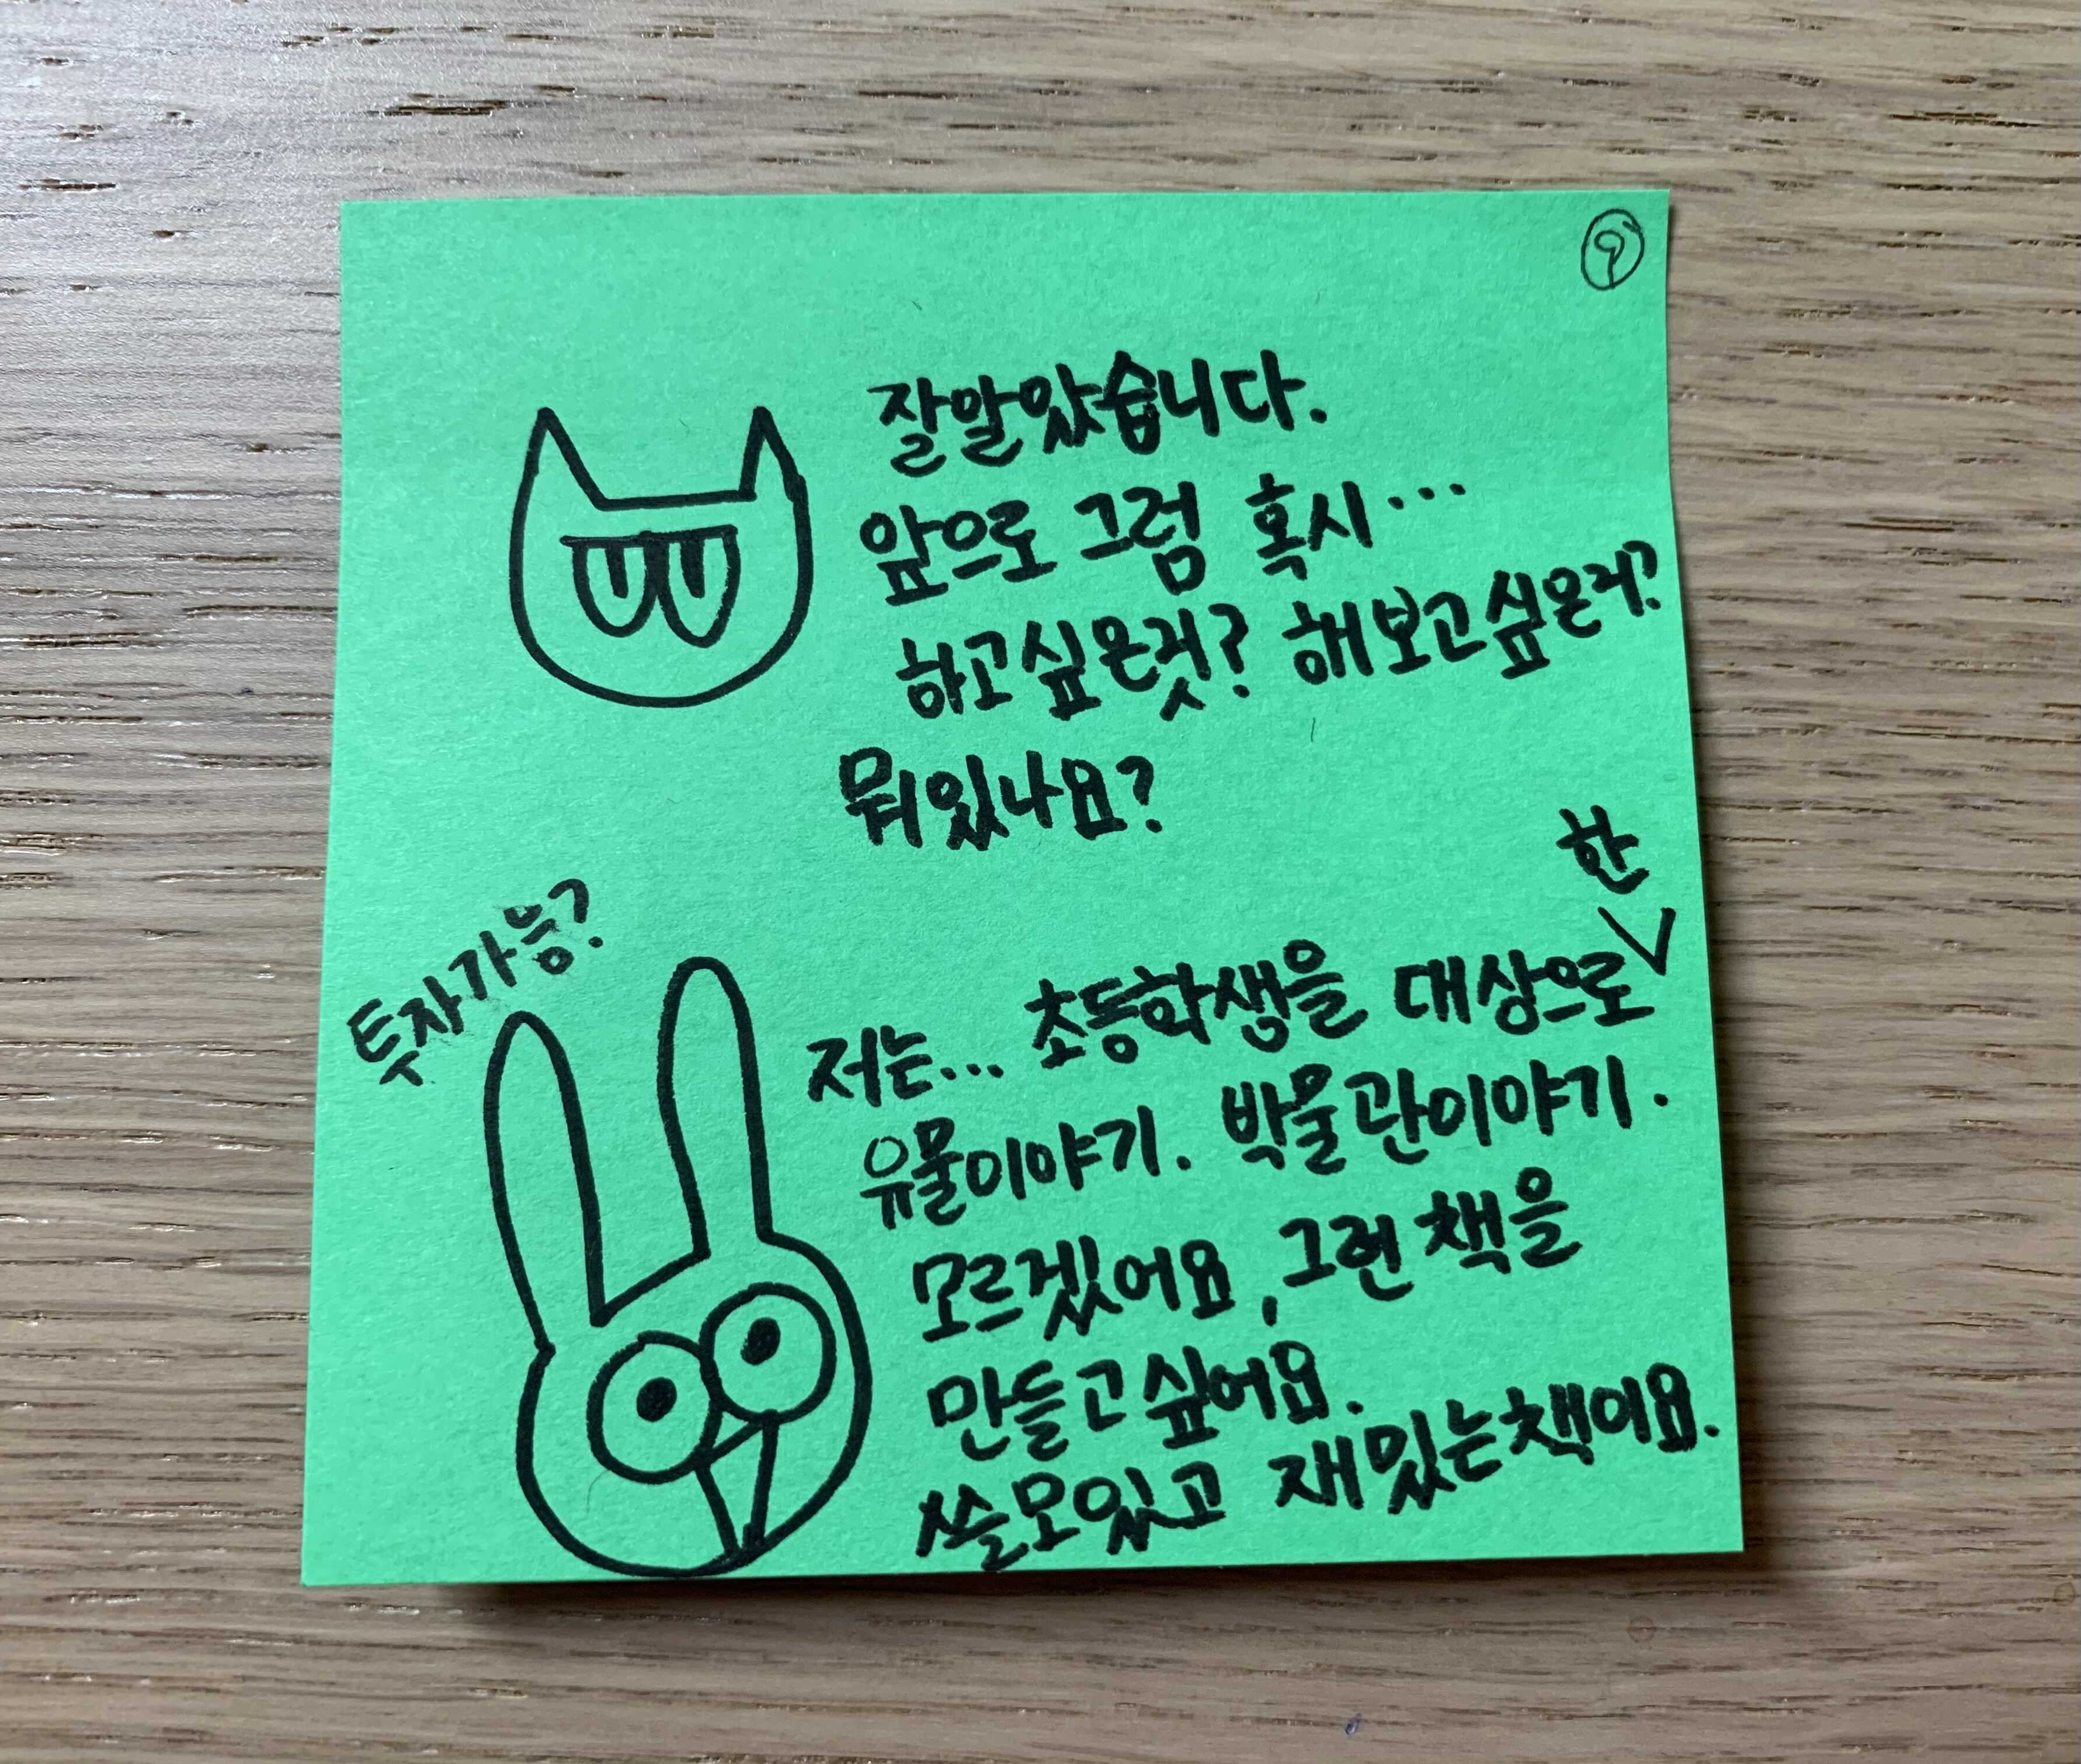 9
잘알았습니다.
앞으로 그럼 혹시...
하고싶은것? 해보고싶은거?
뭐있나요?
투자가능?
한
저는... 초등학생을 대상으로
유물이야기. 박물관이야기.
모르겠어요, 그런 책을
만들고싶어요.
쓸모있고 재밌는책이요.